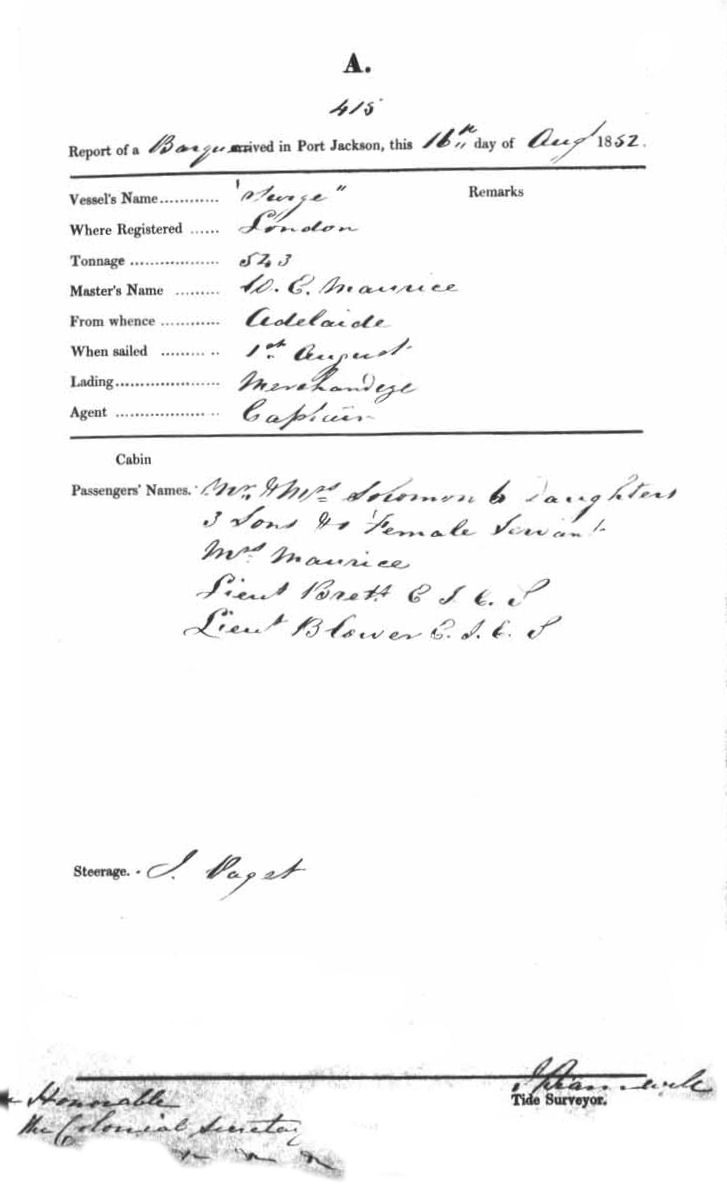 A.
415
Report of a Barque arrived in Port Jackson, this 16th day of Augt 1852.
Vessel's Name............ "Surge" Remarks
Where Registered ...... London
Tonnage .................. 543
Master's Name ......... W. E. Maurice
From whence ............ Adelaide
When sailed ......... .. 1st August
Lading.................. Merchandize
Agent .................. .. Captain
Cabin
Passengers' Names. Mr. & Mrs Solomon 6 Daughters
3 Sons & 1 Female Servant
Mrs Maurice
Lieut Brett E I C S
Lieut Blower E. I. C. S
Steerage. - J. Paget
Honorable
the Colonial Secretary
Tide Surveyor.